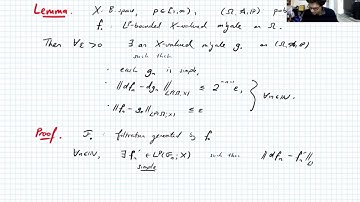 Lemma. X B-space, p∈[1,∞), (Ω, A, P) prob.
f. Lᵖ-bounded X-valued mgale on Ω.
Then ∀ε>0 ∃ an X-valued mgale g. on (Ω, A, P)
such that
· each gₙ is simple,
· ‖dfₙ - dgₙ‖_{Lᵖ(Ω;X)} ≤ 2⁻ⁿ⁻¹ε,
· ‖fₙ - gₙ‖_{Lᵖ(Ω;X)} ≤ ε
∀n∈ℕ.
Proof. filtration generated by f.
∀n∈ℕ, ∃ fₙ' ∈ Lᵖ(σₙ; X) such that ‖dfₙ - fₙ'‖
simple